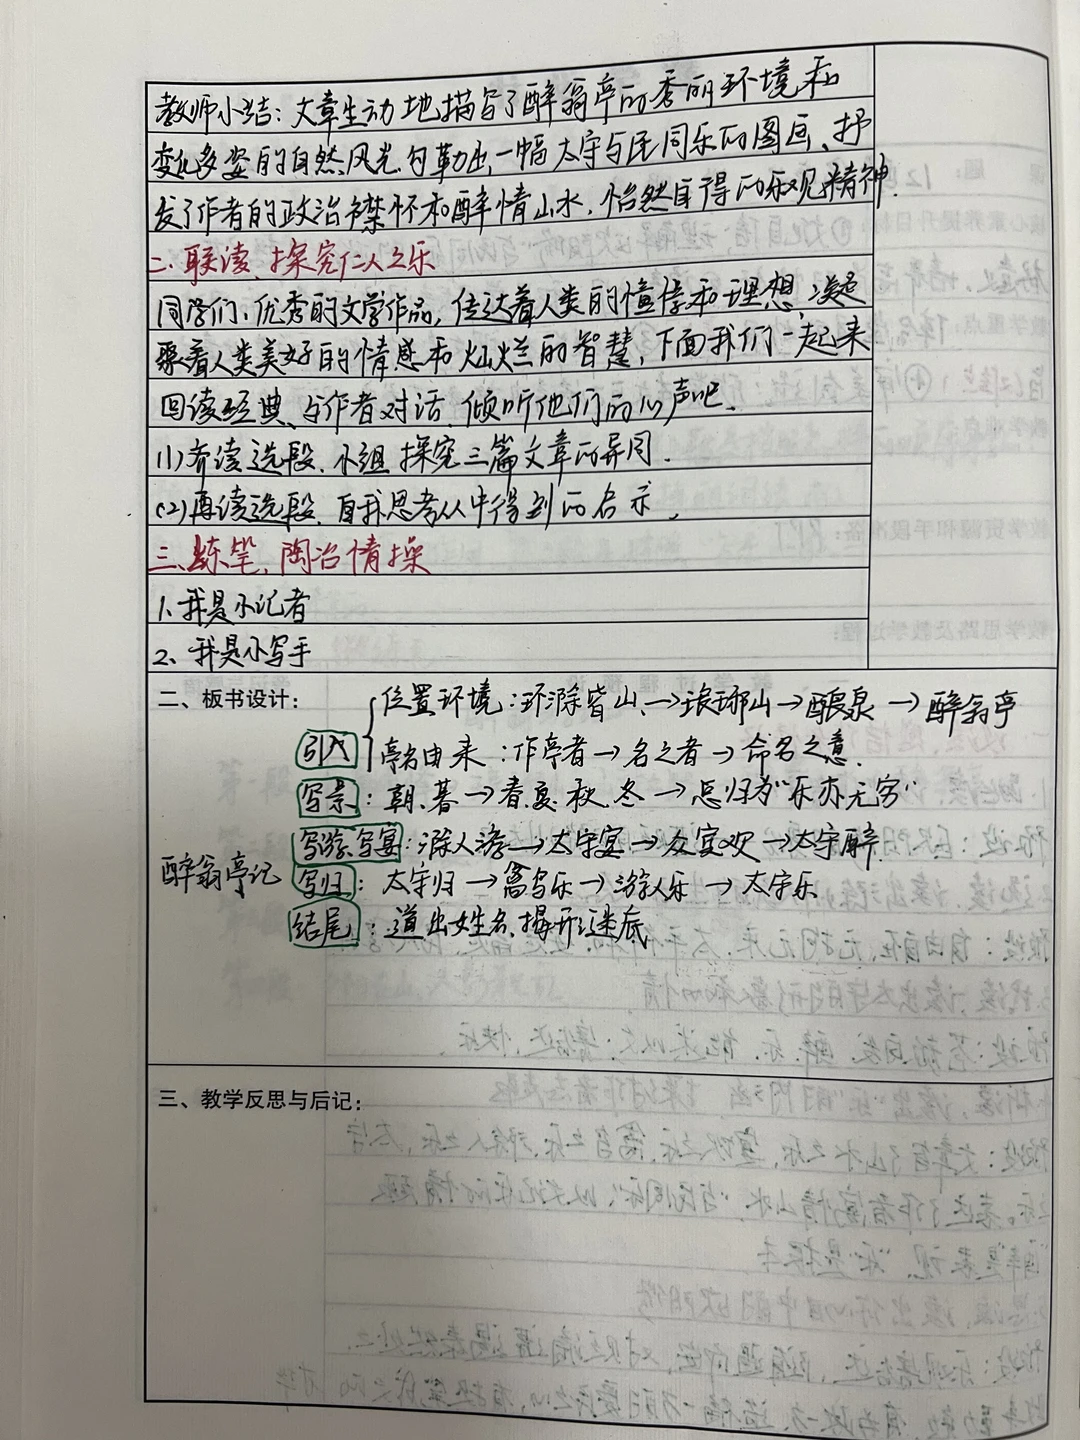 教师小结：文章生动地描写了醉翁亭的秀丽环境和
变化多姿的自然风光，勾勒出一幅太守与民同乐的图画，抒
发了作者的政治襟怀和醉情山水，怡然自得的乐观精神.
二.联读，探究仁人之乐
同学们，优秀的文学作品，传达着人类的憧憬和理想，凝
聚着人类美好的情感和灿烂的智慧，下面我们一起来
回读经典、与作者对话，倾听他们的心声吧.
(1)齐读选段，小组探究三篇文章的异同.
(2)再读选段，自我思考从中得到的启示.
三.练笔，陶冶情操
1.我是小记者
2、我是小写手
二、板书设计：
位置环境：环滁皆山→琅琊山→酿泉→醉翁亭
引入
亭名由来：作亭者→名之者→命名之意.
写景：朝、暮→春、夏、秋、冬→总归为“乐亦无穷”
写游、写宴：滁人游→太守宴→众宾欢→太守醉.
醉翁亭记
写归：太守归→禽鸟乐→游人乐→太守乐
结尾：道出姓名、揭开谜底
三、教学反思与后记：